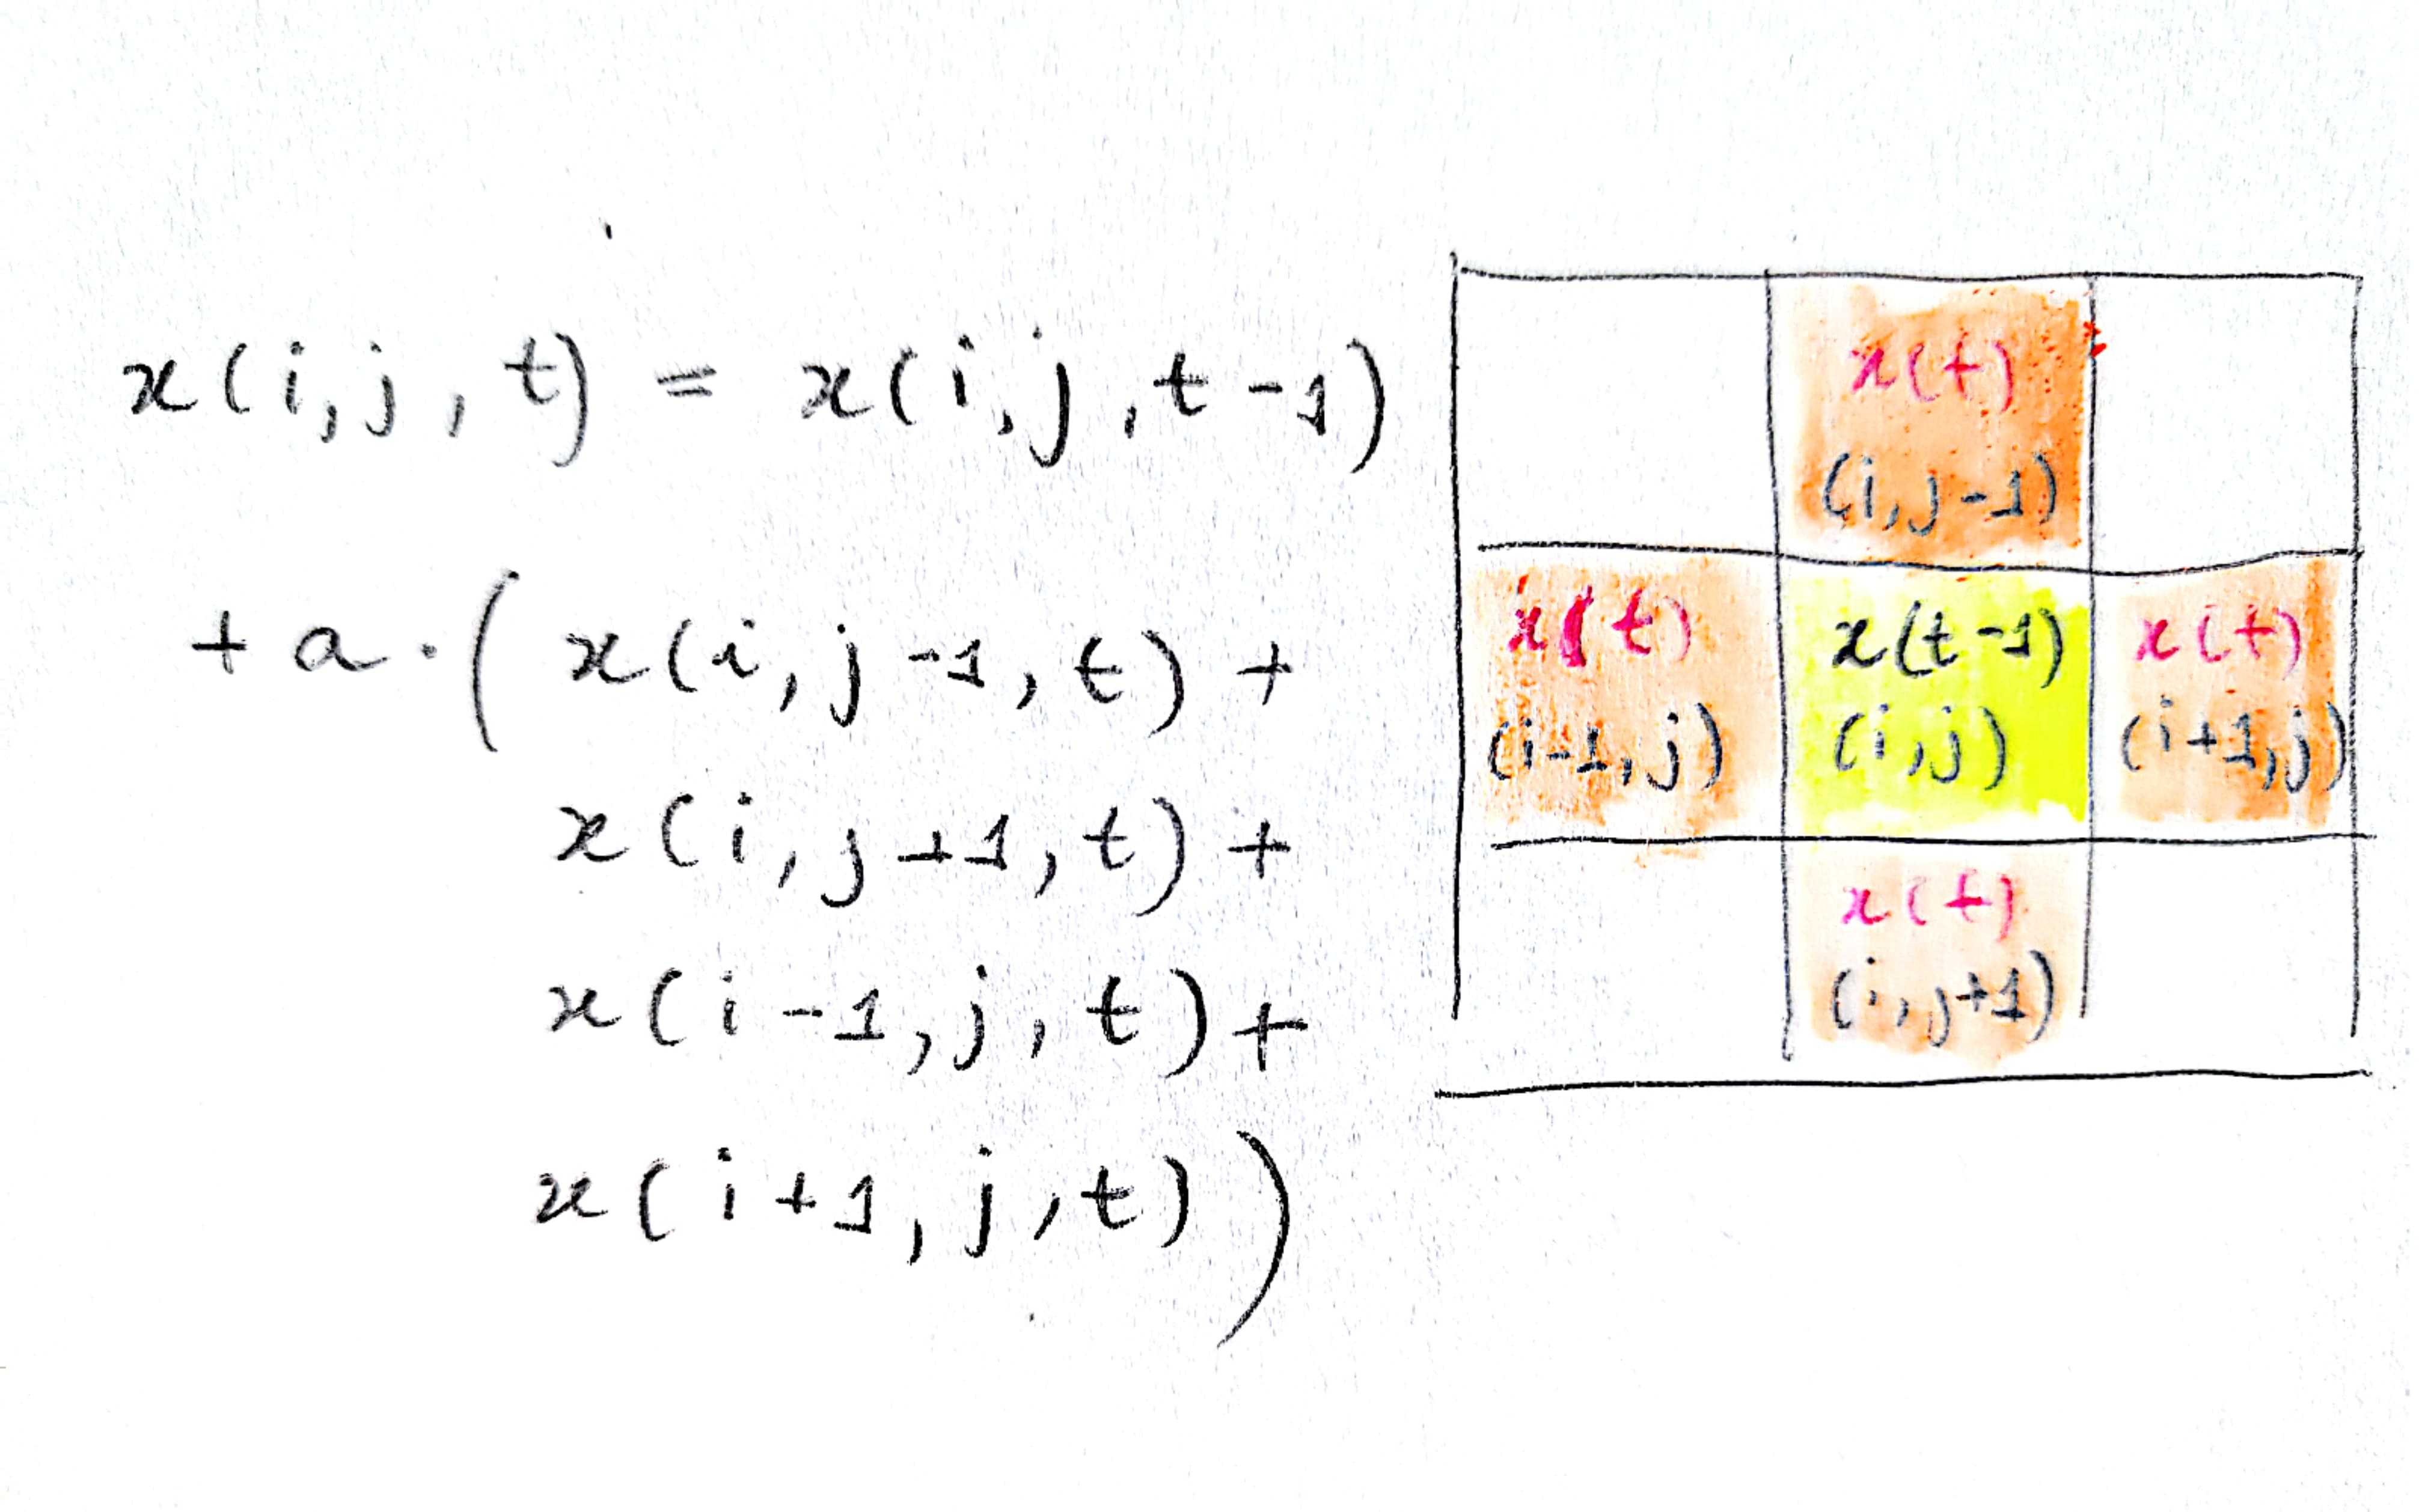 x(i,j,t) = x(i,j,t-1)
+ a.( x(i,j-1,t) +
x(i,j+1,t) +
x(i-1,j,t) +
x(i+1,j,t))
x(t)
(i,j-1)
x(t) x(t-1) x(t)
(i-1,j) (i,j) (i+1,j)
x(t)
(i,j+1)